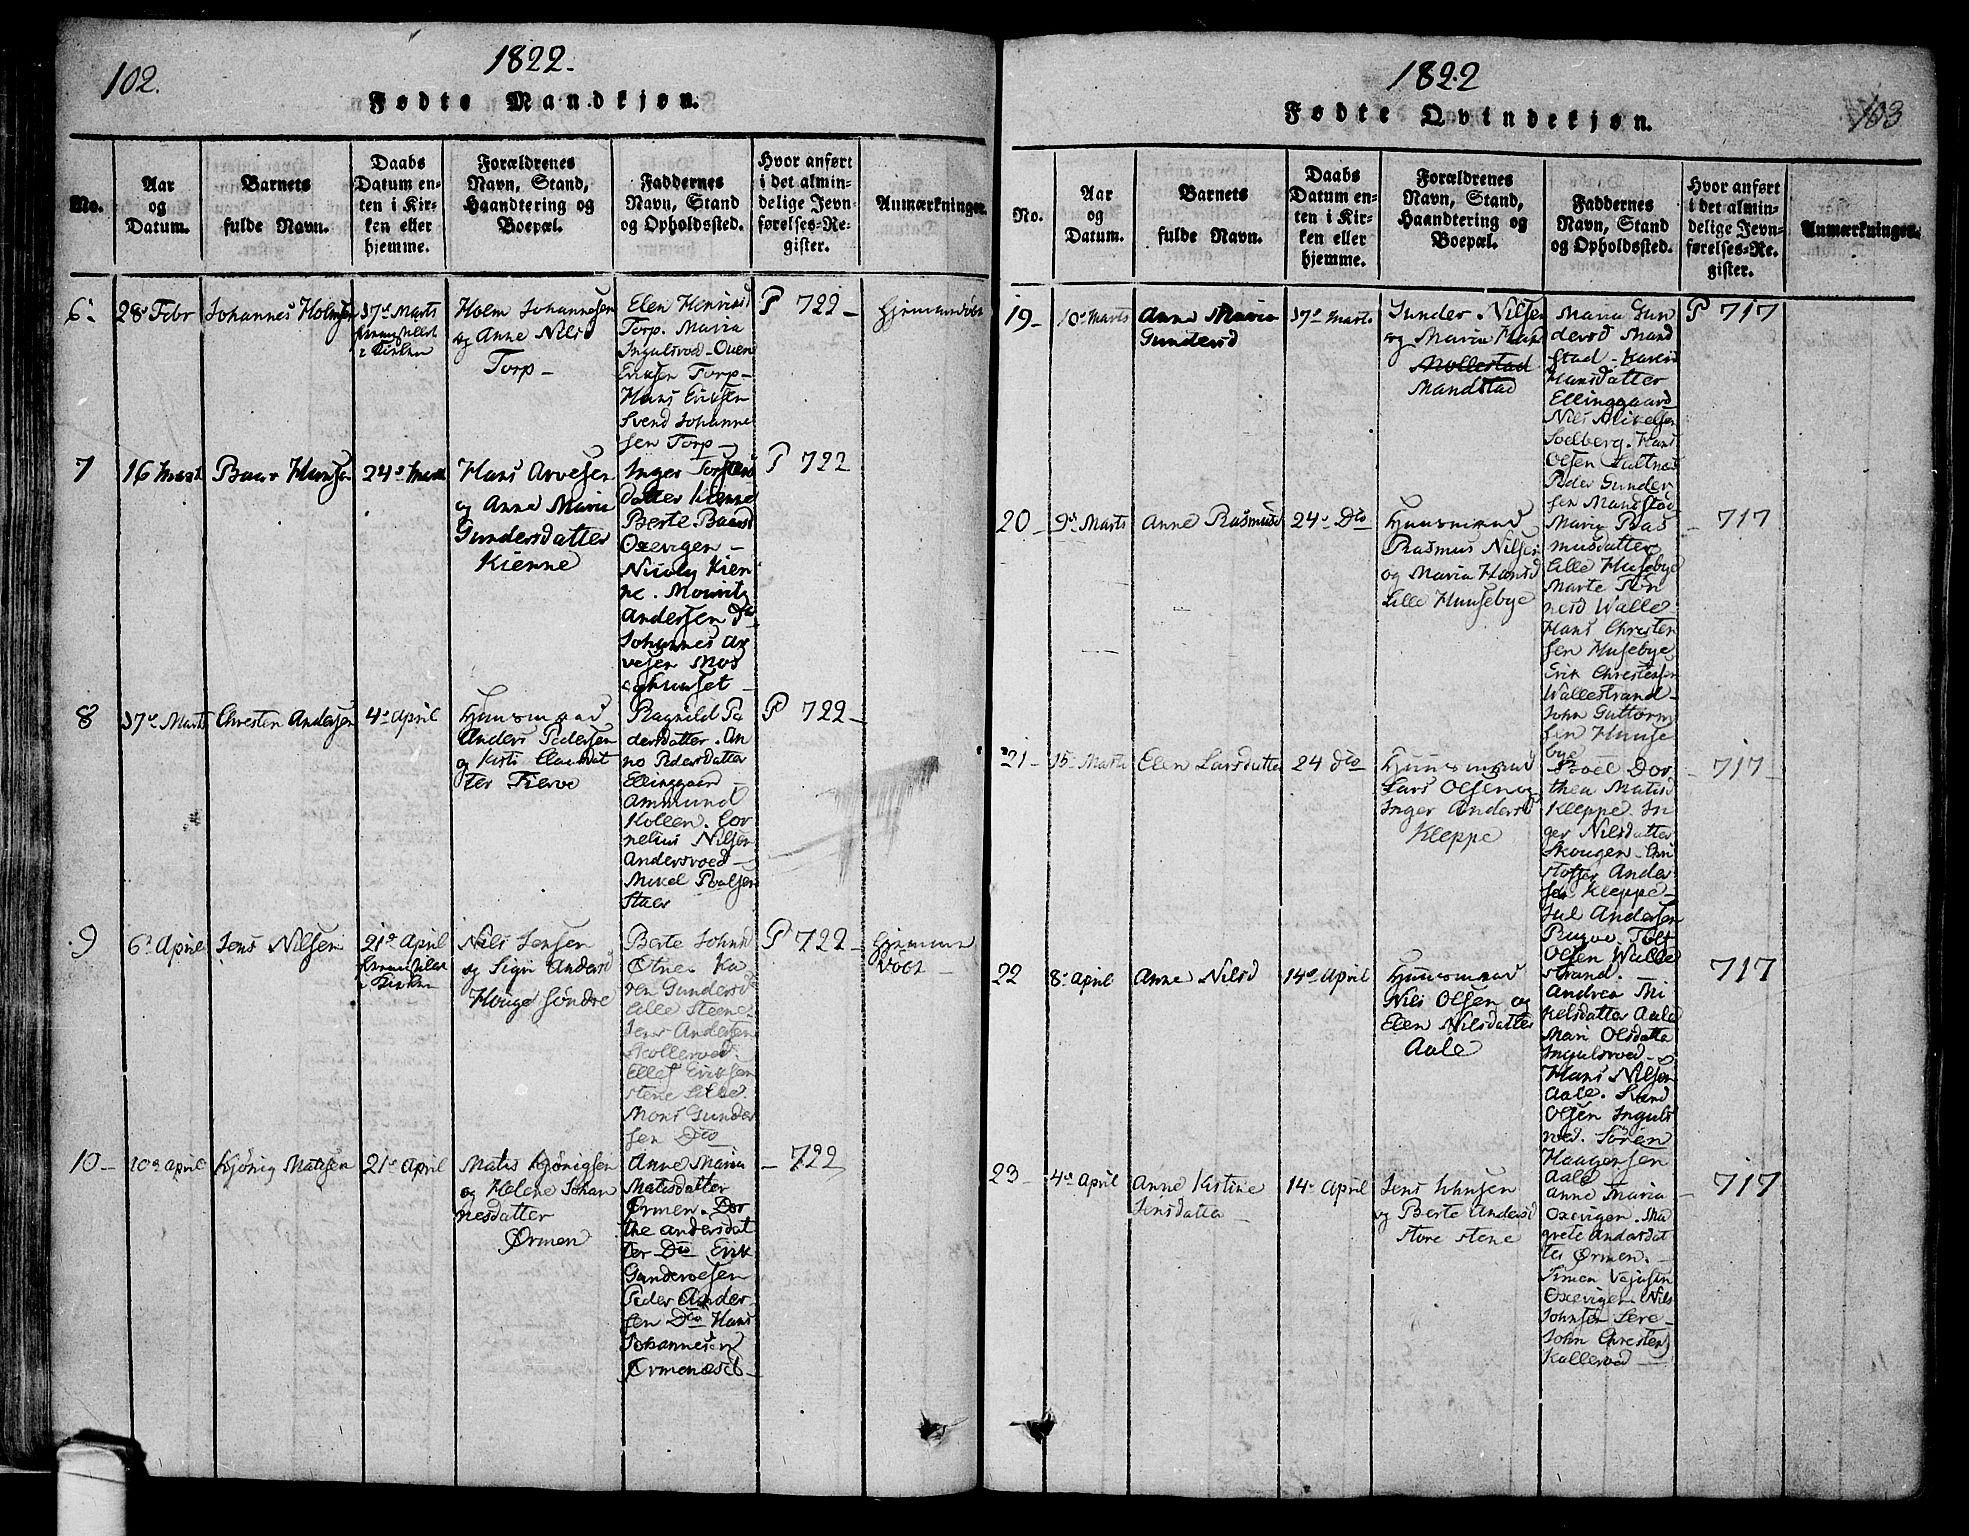 102.
1822.
Fødte Mandkjøn.
No.
Aar
og
Datum.
Barnets
fulde Navn.
Daabs
Datum en-
ten i Kir-
ken eller
hjemme.
Forældrenes
Navn, Stand,
Haandtering og
Boepæl.
Faddernes
Navn, Stand
og Opholdssted.
Hvor anført
i det almin-
delige Jevn-
førelses-Re-
gister.
Anmærkninger.
6.
28 Febr
Johannes Holmsen
17 Marts
i Kirken
Holm Johannesen
og Anne Nilsd
Torp
Elen Henriksd
Torp. Maria
Ingulsrod - Ouen
Eriksen Torp -
Hans Eriksen
Svend Johanne
sen Torp -
P 722 -
Hjemmedøbt
7
16 Marts
Baar Hansen
24 Marts
Hans Arvesen
og Anne Maria
Gundersdatter
Kienne
Inger Torstens
datter Kienne
Berte Baarsd
Oxevigen -
Nicolay Kien
ne. Mouritz
Andersen Do
Johannes Ar
vesen Mos
seghuuset -
P 722
8
17 Marts
Chresten Andersen
4 April
Huusmand
Anders Pedersen
og Kirsti Clausdat
ter Fierve
Ragnild Pe
dersdatter. An
ne Pedersdatter
Ellinggaard
Ammund
Kollen. Cor
nelius Nilsen
Andersroed -
Mikel Poulsen
P 722 -
9
6 April
Jens Nilsen
21 April
i Kirken
Nils Jensen
og Sigri Andersd
Houge Søndre
Berte Johnsd
Otne. Ka
ren Gundersd
Lille Steene
Jens Andersen
Skollerød.
Ellef Eriksen
Stene Lille
Mons Gunder
sen Do
P 722 -
Hjemme
døbt -
10 -
10 April
Kjönig Matisen
21 April
Matis Kjönigsen
og Helene Johan
nesdatter
Ørmen
Anne Maria
Matisdatter
Ørmen. Dor
the Andersdat
ter Do Erik
Gundersen
Peder Ander
sen Do Hans
Johannesen
Ørmenæset -
- 722
1822
103
Fødte Qvindekjøn.
No.
Aar
og
Datum.
Barnets
fulde Navn.
Daabs
Datum en-
ten i Kir-
ken eller
hjemme.
Forældrenes
Navn, Stand,
Haandtering og
Boepæl.
Faddernes
Navn, Stand
og Opholdssted.
Hvor anført
i det almin-
delige Jevn-
førelses-Re-
gister.
Anmærkninger.
19 -
10 Marts
Anne Maria
Gundersd
17 Marts
Gunder Nilsen
og Maria Hansd
Mollestad
Mandstad
Maria Gun
dersd Mand
stad - Karen
Hansdatter
Ellinggaard
Nils Mikelsen
Soelberg. Hans
Olsen Hultnæs
Peder Gunder
sen Mandstad
P 717
20 -
9 Marts
Anne Rasmusd
24 Do
Huusmand
Rasmus Nilsen
og Maria Hansd
Lille Huusebye
Maria Ras
musdatter
Lille Husebye
Marte Tøn
nesd Walle
Hans Chresten
sen Husebye
Erik Chrestensen
Wallestrand -
John Guttorm
sen Huuse
bye
- 717 -
21 -
15 Marts
Elen Larsdatter
24 Do
Huusmand
Lars Olsen og
Inger Andersd
Kleppe
Joel Dor
thea Matisd
Kleppe. In
ger Nilsdatter
Skougen - Chri
stoffer Ander
sen Kleppe -
Jul Andersen
Olsen Walle
strand.
- 717 -
22
8 April
Anne Nilsd
14 April
Huusmand
Nils Olsen og
Elen Nilsdatter
Aale
Andrea Mi
kelsdatter Aale
Mari Olsdatter
Ingulsrod -
Hans Nilsen
Aale.
Olsen Inguls
rød. Søren
Haagensen
Aale
717
23 -
4 April
Anne Kistine
Jensdatter
14 April
Jens Johnsen
og Berte Andersd
Store Stene
Anne Maria
Oxevigen. Ma
grete Andersdat
ter Ørmen. -
Simen
Oxevigen. Nils
Johnsen
John Chrestens
Kallerød -
- 717